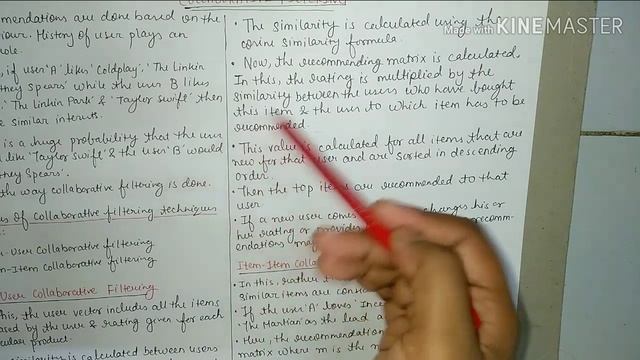 Made with KINEMASTER
mmendations are done based on the
iour. History of user plays an
ole.
if user 'A' likes 'Coldplay', 'The Linkin
tney Spears' while the user B likes
'The Linkin Park' & 'Taylor Swift' then
e similar interests.
is a huge probability that the user
like 'Taylor Swift' & the user 'B' would
tney Spears'.
the way collaborative filtering is done.
es of Collaborative filtering techniques
:
r-User Collaborative filtering
m-Item Collaborative filtering
User Collaborative Filtering
this, the user vector includes all the items
ased by the user & rating given for each
cular product.
similarity is calculated between users
• The similarity is calculated using the
cosine similarity formula.
• Now, the recommending matrix is calculated.
In this, the rating is multiplied by the
similarity between the users who have bought
this item & the user to which item has to be
recommended.
• This value is calculated for all items that are
new for that user and are sorted in descending
order.
• Then the top items are recommended to that
user.
• If a new user comes changes his or
her rating or provides recomm-
endations may
Item-Item Colla
• In this, rather t
similar items are cons
• If the user 'A' loves 'Ince
'The Martian' as the lead a
• Here, the recommendation
matrix where m is the n